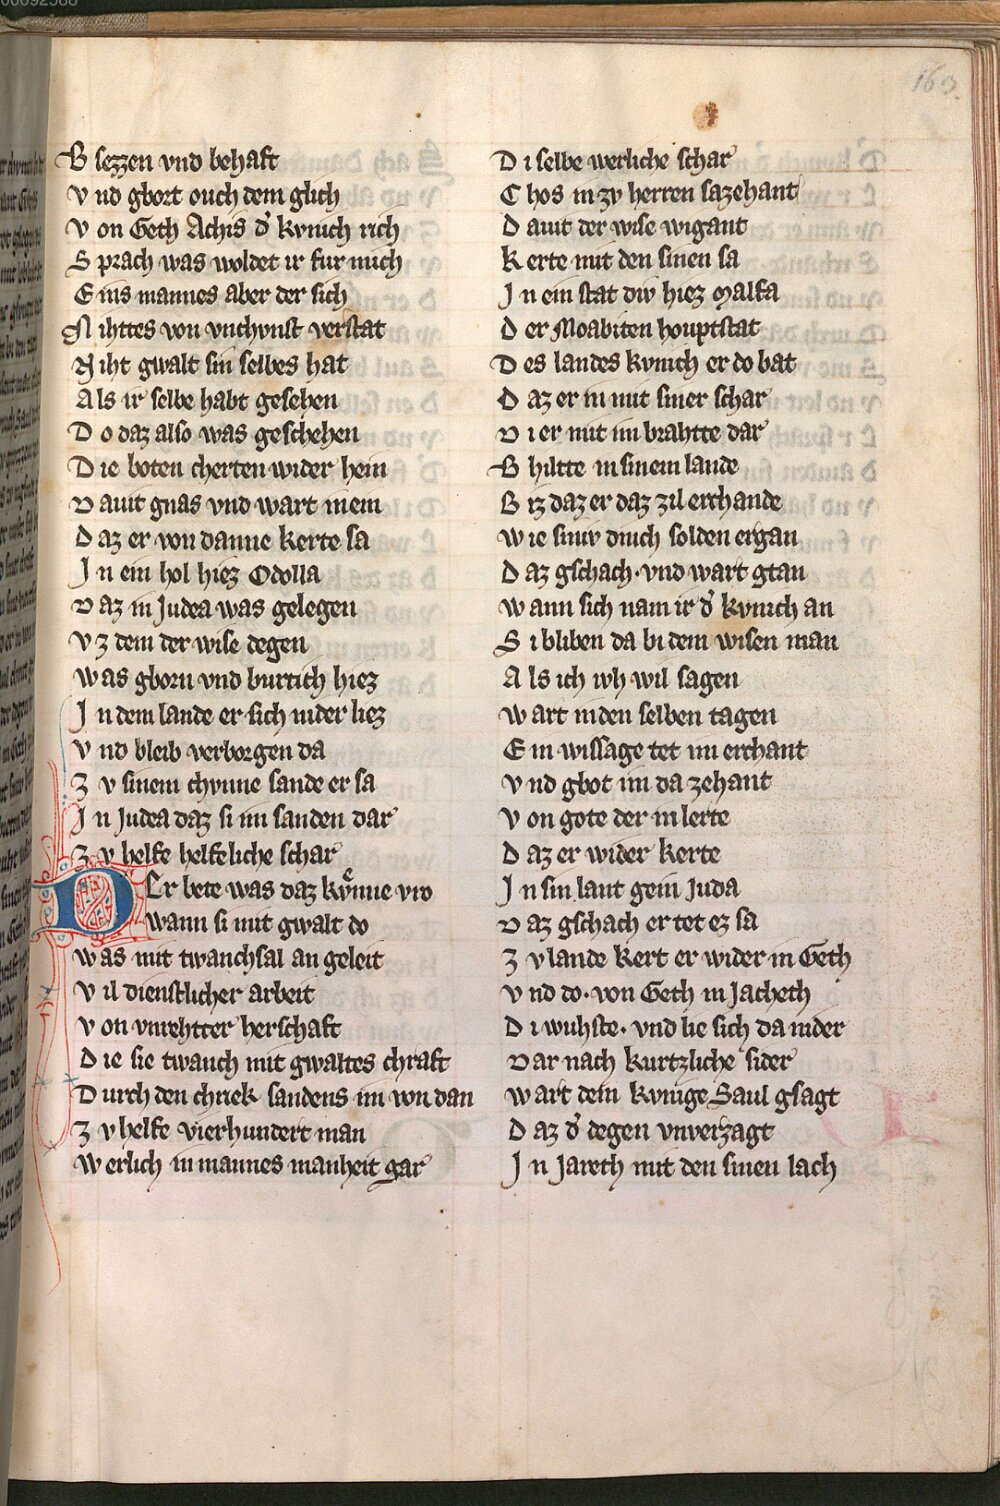 00092588
169.
B sezzen vnd behaft
V nd gbort ouch dem glich
V on Geth Achis d' kvnich rich
S prach was woldet ir fur mich
E ins mannes aber der sich
N ihttes von vnchvnst verstat
N iht gwalt sin selbes hat
A ls ir selbe habt gesehen
D o daz also was geschehen
D ie boten cherten wider hein
D auit gnas vnd wart inein
D az er von danne kerte sa
J n ein hol hiez Odolla
D az in Judea was gelegen
V z dem der wise degen
W as gborn vnd burtich hiez
J n dem lande er sich nider liez
V nd bleib verborgen da
Z v sinem chvnne sande er sa
J n Judea daz si im sanden dar
Z v helfe helfeliche schar
D Er bete was daz kv̊nne vro
wann si mit gwalt do
W as mit twanchsal an geleit
V il dienstlicher arbeit
V on vnrehtter herschaft
D ie sie twanch mit gwaltes chraft
D urch den chriek sandens im von dan
Z v helfe vierhundert man
W erlich in mannes manheit gar
D i selbe werliche schar
C hos in zv herren sazehant
D auit der wise wigant
K erte mit den sinen sa
J n ein stat div hiez Malfa
D er Moabiten houptstat
D es landes kvnich er do bat
D az er in mit siner schar
D i er mit im brahtte dar
B hiltte in sinem lande
B iz daz er daz zil erchande
W ie siniv dinch solden ergan
D az gschach · vnd wart gtan
W ann sich nam ir d' kvnich an
S i bliben da bi dem wisen man
A ls ich iv wil sagen
W art in den selben tagen
E in wissage tet im erchant
V nd gbot im da zehant
V on gote der in lerte
D az er wider kerte
J n sin lant gein Juda
D az gschach er tet ez sa
Z v lande kert er wider in Geth
V nd do · von Geth in Jacheth
D i wuhste · vnd lie sich da nider
D ar nach kurtzliche sider
W art dem kvnige Saul gsagt
D az d' degen vnverzagt
J n Jareth mit den sinen lach